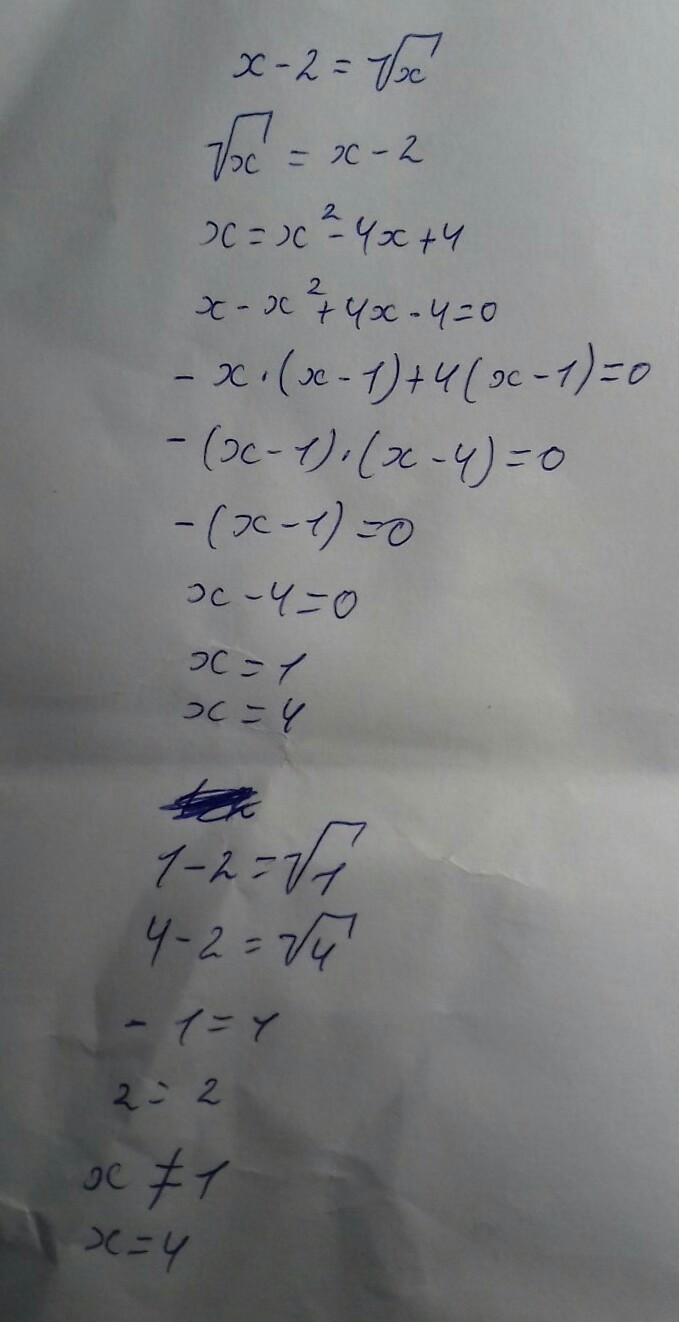 x - 2 = √x
√x = x - 2
x = x² - 4x + 4
x - x² + 4x - 4 = 0
- x · (x - 1) + 4 (x - 1) = 0
- (x - 1) · (x - 4) = 0
- (x - 1) = 0
x - 4 = 0
x = 1
x = 4
1 - 2 = √1
4 - 2 = √4
- 1 = 1
2 = 2
x ≠ 1
x = 4